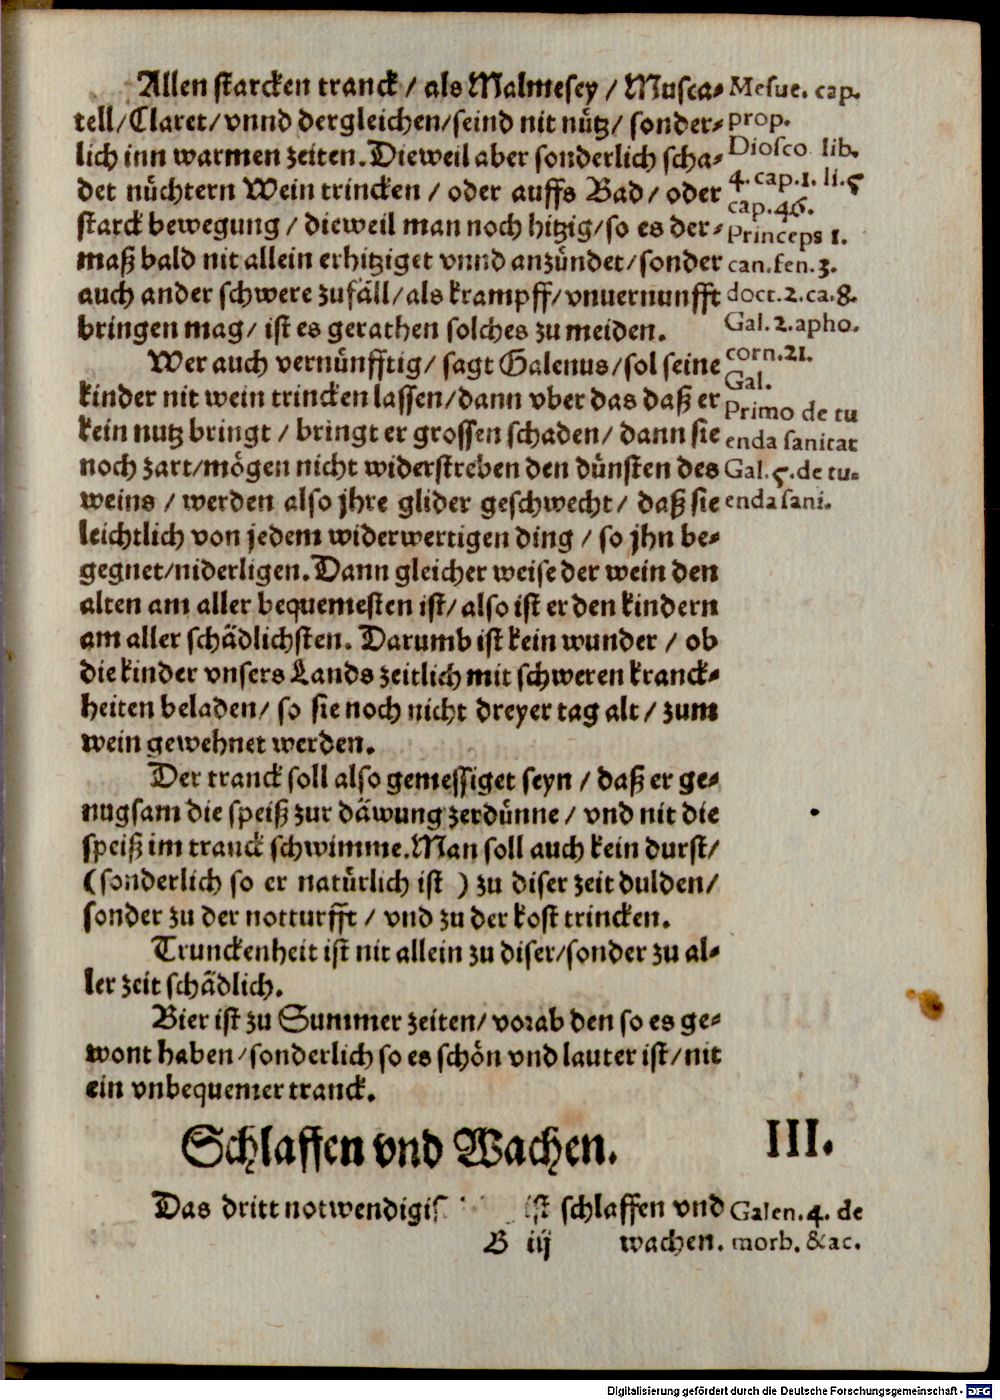 Allen starcken tranck / als Malmesey / Musca-
tell/Claret/vnnd dergleichen/seind nit nütz/ sonder-
lich inn warmen zeiten. Dieweil aber sonderlich scha-
det nüchtern Wein trincken / oder auffs Bad/ oder
starck bewegung / dieweil man noch hitzig/so es der-
maß bald nit allein erhitziget vnnd anzündet/sonder
auch ander schwere zufäll/als krampff/vnuernunfft
bringen mag/ ist es gerathen solches zu meiden.
Wer auch vernünfftig/ sagt Galenus/sol seine
kinder nit wein trincken lassen/dann vber das daß er
kein nutz bringt / bringt er grossen schaden/ dann sie
noch zart/mögen nicht widerstreben den dünsten des
weins / werden also jhre glider geschwecht/ daß sie
leichtlich von jedem widerwertigen ding / so jhn be-
gegnet/niderligen. Dann gleicher weise der wein den
alten am aller bequemesten ist/ also ist er den kindern
am aller schädlichsten. Darumb ist kein wunder / ob
die kinder vnsers Lands zeitlich mit schweren kranck-
heiten beladen/ so sie noch nicht dreyer tag alt / zum
wein gewehnet werden.
Der tranck soll also gemessiget seyn / daß er ge-
nugsam die speiß zur däwung zerdünne / vnd nit die
speiß im tranck schwimme. Man soll auch kein durst/
(sonderlich so er natürlich ist ) zu diser zeit dulden/
sonder zu der notturfft / vnd zu der kost trincken.
Trunckenheit ist nit allein zu diser/sonder zu al-
ler zeit schädlich.
Bier ist zu Summer zeiten/ vorab den so es ge-
wont haben/sonderlich so es schön vnd lauter ist/nit
ein vnbequemer tranck.
Mesue. cap.
prop.
Diosco lib.
4. cap.1. li.5
cap.46.
Princeps 1.
can.fen.3.
doct.2.ca.8.
Gal.2.apho.
corn.21.
Gal.
Primo de tu
enda sanitat
Gal.5.de tu-
enda sani.
Schlaffen vnd Wachen. III.
Das dritt ist schlaffen vnd
B iij wachen.
Galen.4. de
morb. &ac.
Digitalisierung gefördert durch die Deutsche Forschungsgemeinschaft - DFG